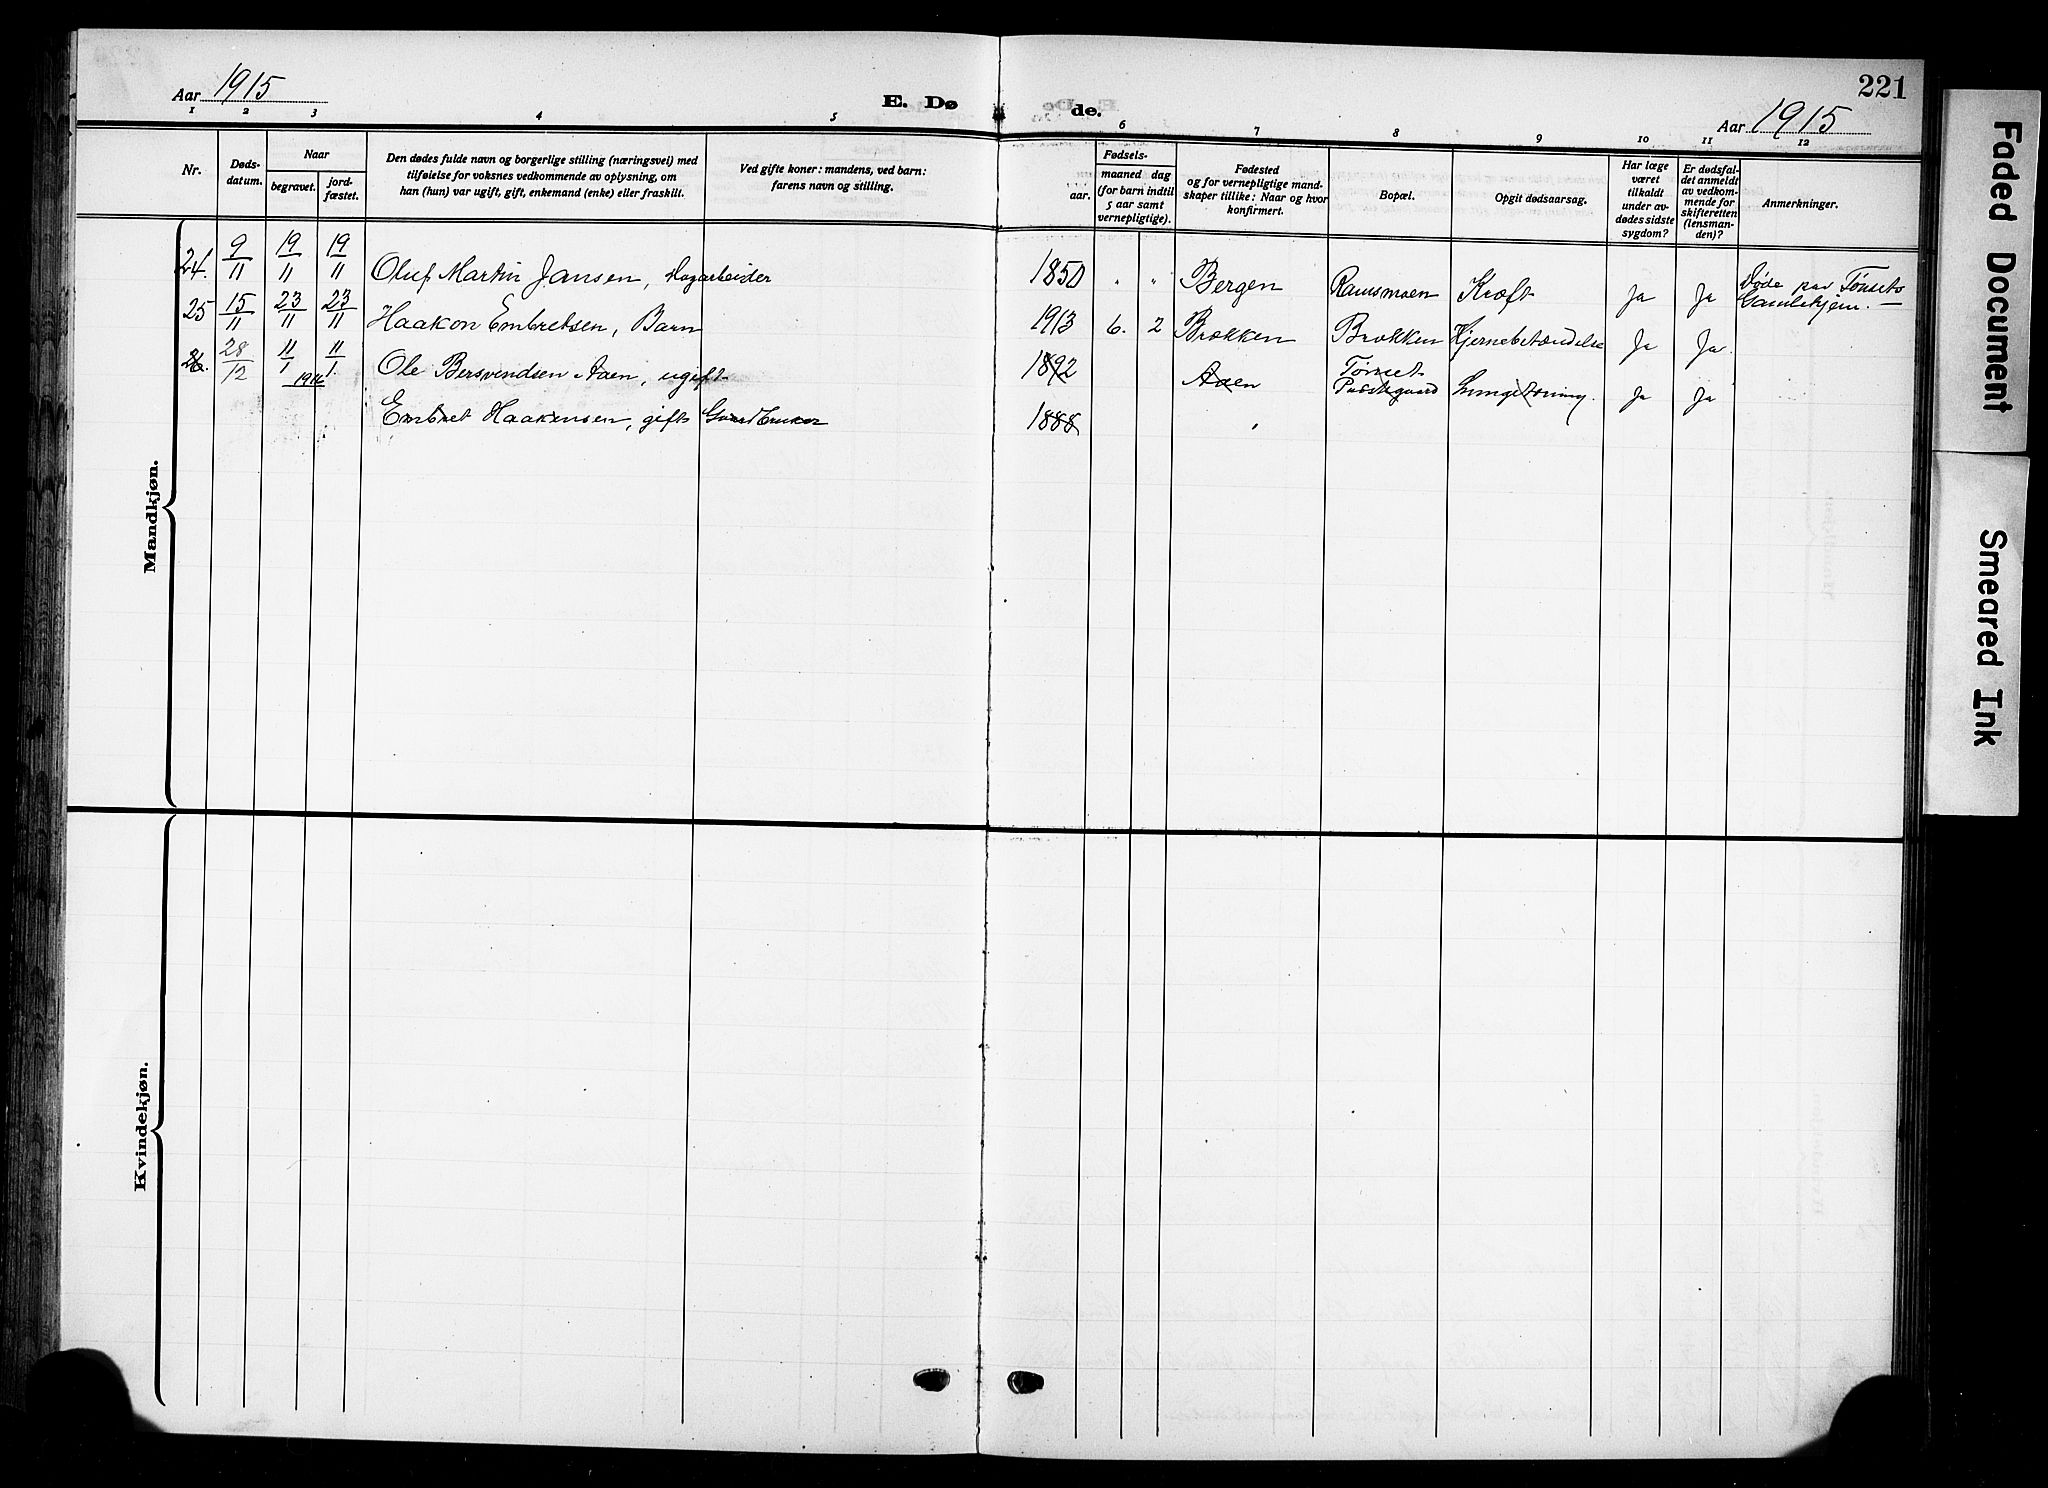 Aar 1915
E. Døde.
221
Aar 1915
1 2 3 4 5 6 7 8 9 10 11 12
Nr.
Døds-
datum.
Naar
begravet.
jord-
fæstet.
Den dødes fulde navn og borgerlige stilling (næringsvei) med
tilføielse for voksnes vedkommende av oplysning, om
han (hun) var ugift, gift, enkemand (enke) eller fraskilt.
Ved gifte koner: mandens, ved barn:
farens navn og stilling.
aar.
Fødsels-
maaned dag
(for barn indtil
5 aar samt
vernepligtige).
Fødested
og for vernepligtige mand-
skaper tillike: Naar og hvor
konfirmert.
Bopæl.
Opgit dødsaarsag.
Har læge
været
tilkaldt
under av-
dødes sidste
sygdom?
Er dødsfal-
det anmeldt
av vedkom-
mende for
skifteretten
(lensman-
den)?
Anmerkninger.
Mandkjøn.
24. 9/11 19/11 19/11 Oluf Martin Jansen, 1850 " " Bergen Ramsmoen Kræft Ja Ja Døde paa Tønsets
Gamlehjem. —
25 15/11 23/11 23/11 Haakon Embretsen, Barn 1913 6. 2 Brækken Brækken Hjernebetændelse Ja Ja.
26. 28/12 11/1 1916 11/1 Ole Bersvendsen Aaen, ugift 1892 Aaen Tønset
Præstegaard Lungetæring. Ja Ja
Embret Haakensen, gift Gaardbruker 1888 "
Kvindekjøn.
Faded Document
Smeared Ink